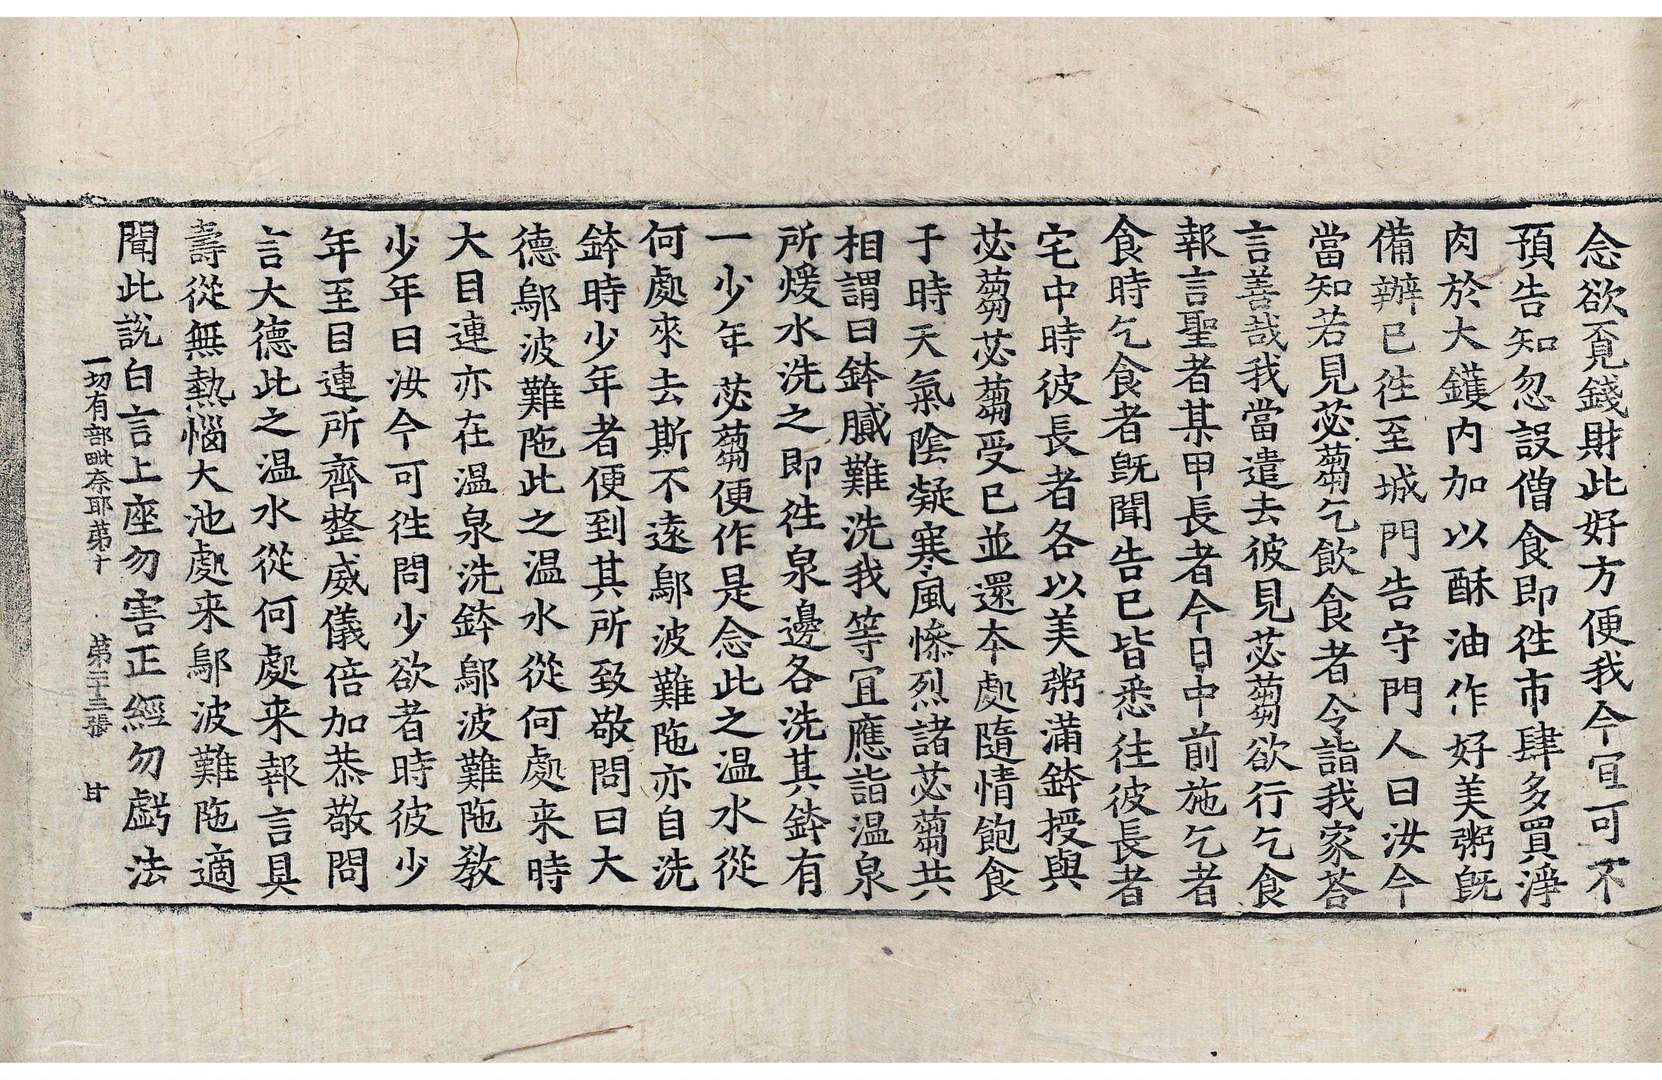 念欲覔錢財此好方便我今冝可不
預告知忽設僧食即徃市肆多買淨
肉於大鑊内加以酥油作好美粥旣
備辦已徃至城門告守門人曰汝今
當知若見苾蒭乞飲食者令詣我家荅
言善哉我當遣去彼見苾蒭欲行乞食
報言聖者某甲長者今日中前施乞者
食時乞食者旣聞告已皆悉往彼長者
宅中時彼長者各以美粥滿鉢授與
苾蒭苾蒭受已並還夲處隨情飽食
于時天氣陰凝寒風慘烈諸苾蒭共
相謂曰鉢膩難洗我等冝應詣温泉
所煖水洗之即徃泉邊各洗其鉢有
一少年苾蒭便作是念此之温水從
何處來去斯不遠鄔波難陁亦自洗
鉢時少年者便到其所致敬問曰大
德鄔波難陁此之温水從何處来時
大目連亦在温泉洗鉢鄔波難陁教
少年曰汝今可徃問少欲者時彼少
年至目連所齊整威儀倍加恭敬問
言大德此之温水從何處来報言具
壽從無熱惱大池處来鄔波難陁適
聞此說白言上座勿害正經勿虧法
一切有部毗奈耶苐十　苐二十三張　甘